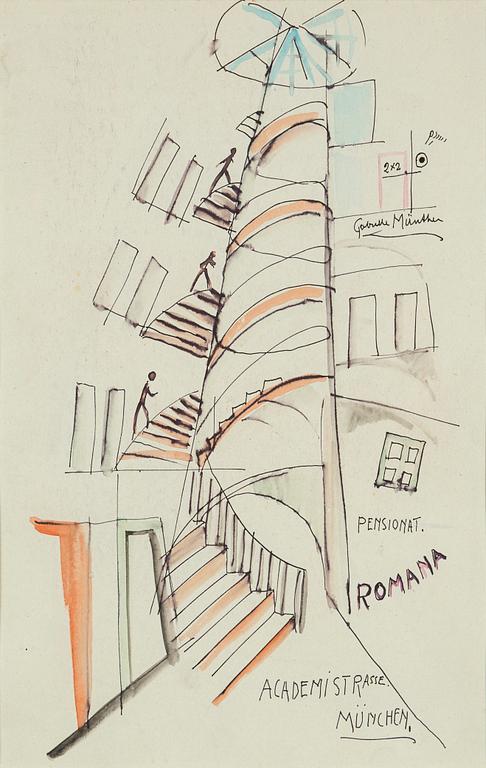 2x2
Gabriele Münther
PENSIONAT.
ROMANA
ACADEMISTRASSE.
MÜNCHEN.